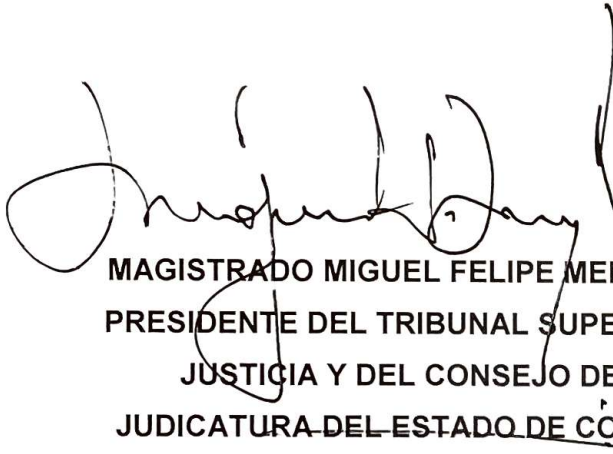 MAGISTRADO MIGUEL FELIPE
PRESIDENTE DEL TRIBUNAL SUPE
JUSTICIA Y DEL CONSEJO DE
JUDICATURA DEL ESTADO DE CO